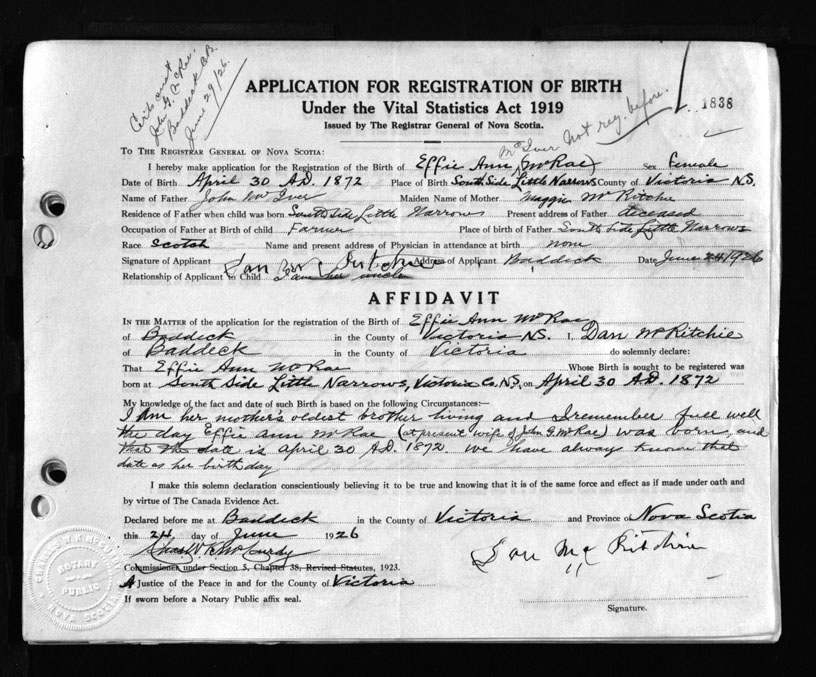 Cert. sent
John G. McRae
Baddeck C.B.
June 29/26.
APPLICATION FOR REGISTRATION OF BIRTH
Under the Vital Statistics Act 1919
Issued by The Registrar General of Nova Scotia.
1838
McIver Not reg. before.
TO THE REGISTRAR GENERAL OF NOVA SCOTIA:
I hereby make application for the Registration of the Birth of Effie Ann McRae Sex female
Date of Birth April 30 A.D. 1872 Place of Birth South Side Little Narrows County of Victoria N.S.
Name of Father John McIver Maiden Name of Mother Maggie McRitchie
Residence of Father when child was born South Side Little Narrows Present address of Father deceased
Occupation of Father at Birth of child Farmer Place of birth of Father South Side Little Narrows
Race Scotch Name and present address of Physician in attendance at birth none
Signature of Applicant Dan Address of Applicant Baddeck Date June 24 1926
Relationship of Applicant to Child I am her uncle
AFFIDAVIT
IN THE MATTER of the application for the registration of the Birth of Effie Ann McRae
of Baddeck in the County of Victoria N.S. I, Dan McRitchie
of Baddeck in the County of Victoria do solemnly declare:
That Effie Ann McRae Whose Birth is sought to be registered was
born at South Side Little Narrows, Victoria Co. N.S. on April 30 A.D. 1872
My knowledge of the fact and date of such Birth is based on the following Circumstances:—
I am her mother's oldest brother living and I remember full well
the day Effie Ann McRae (at present wife of John G. McRae) was born, and
that the date is April 30 A.D. 1872. We have always known that
date as her birthday
I make this solemn declaration conscientiously believing it to be true and knowing that it is of the same force and effect as if made under oath and
by virtue of The Canada Evidence Act.
Declared before me at Baddeck in the County of Victoria and Province of Nova Scotia
this 24 day of June 1926
Dan Mc Ritchie
Commissioner under Section 5, Chapter 38, Revised Statutes, 1923.
A Justice of the Peace in and for the County of Victoria
If sworn before a Notary Public affix seal.
Signature.
NOTARY
PUBLIC
NOVA SCOTIA